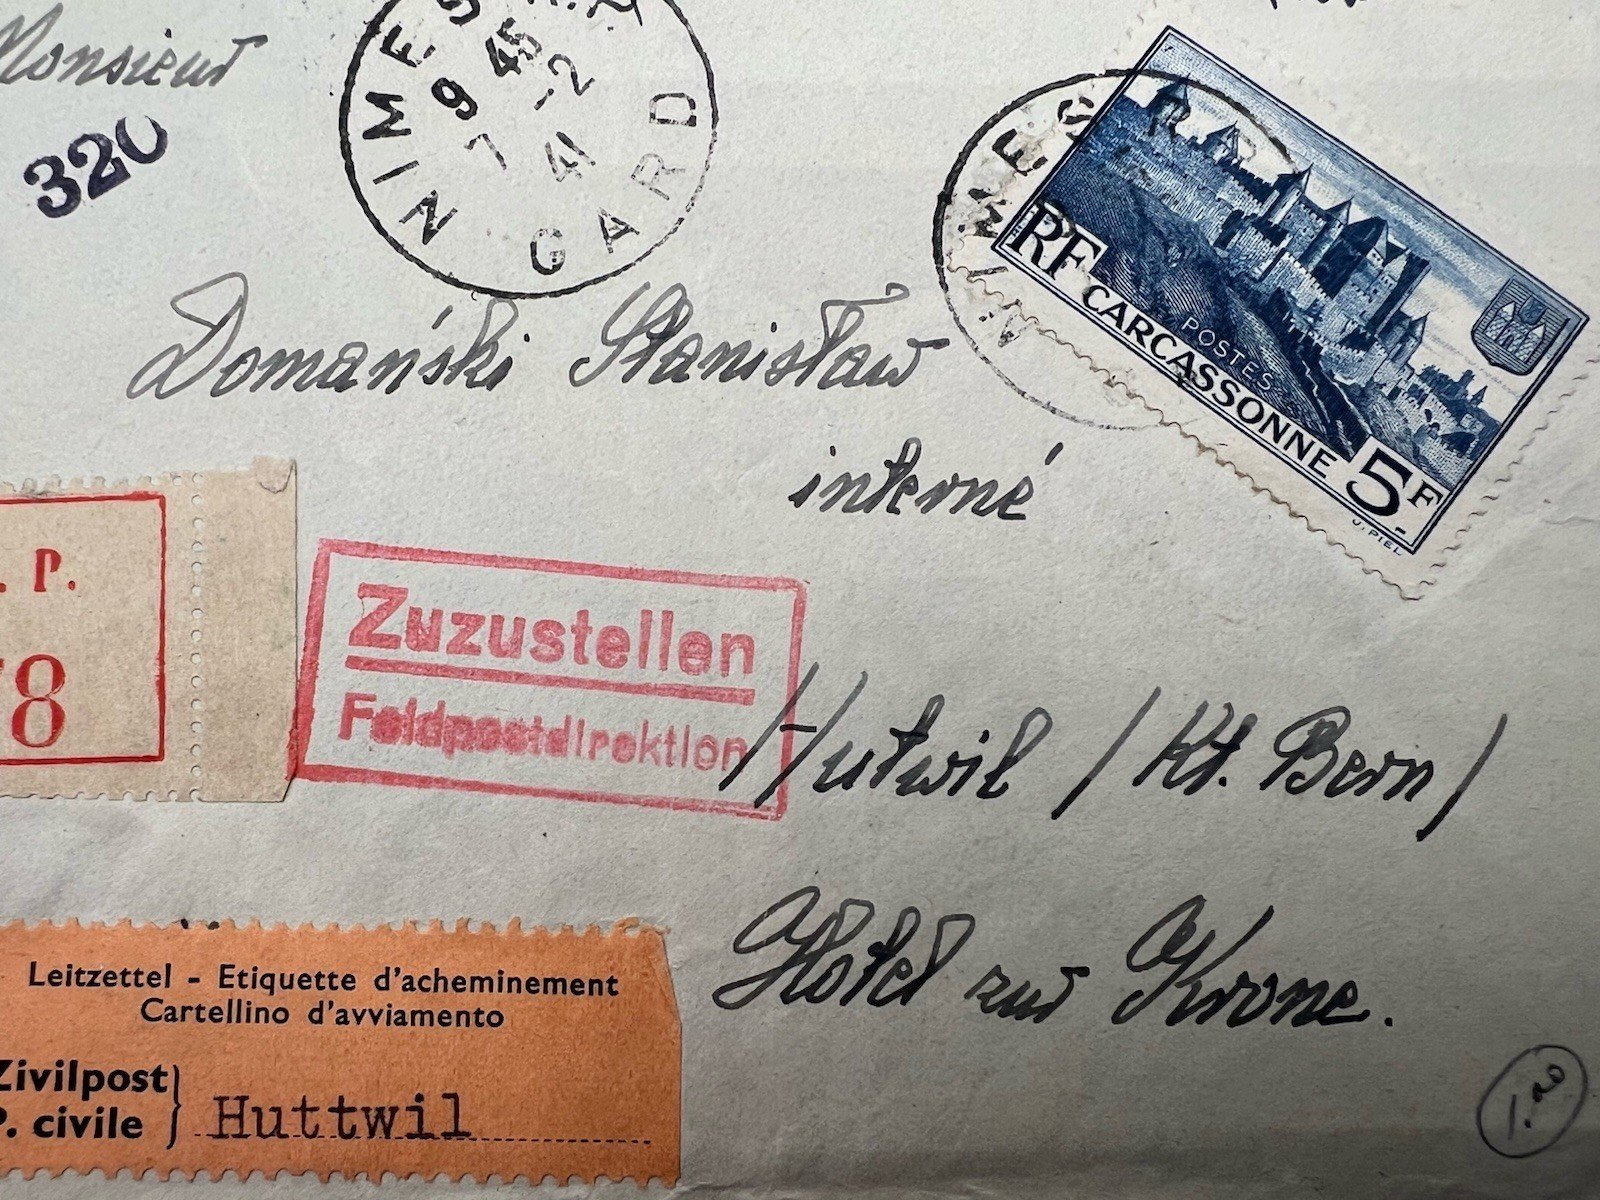 Monsieur
320
NIMES
9 45
7 -2
41
GARD
NIMES
RF
POSTES
CARCASSONNE
5F
J. PIEL
Domański Stanisław
interné
. P.
8
Zuzustellen
Feldpostdirektion
Hutwil / Kt. Bern /
Hotel zur Krone.
Leitzettel - Etiquette d'acheminement
Cartellino d'avviamento
Zivilpost
P. civile } Huttwil